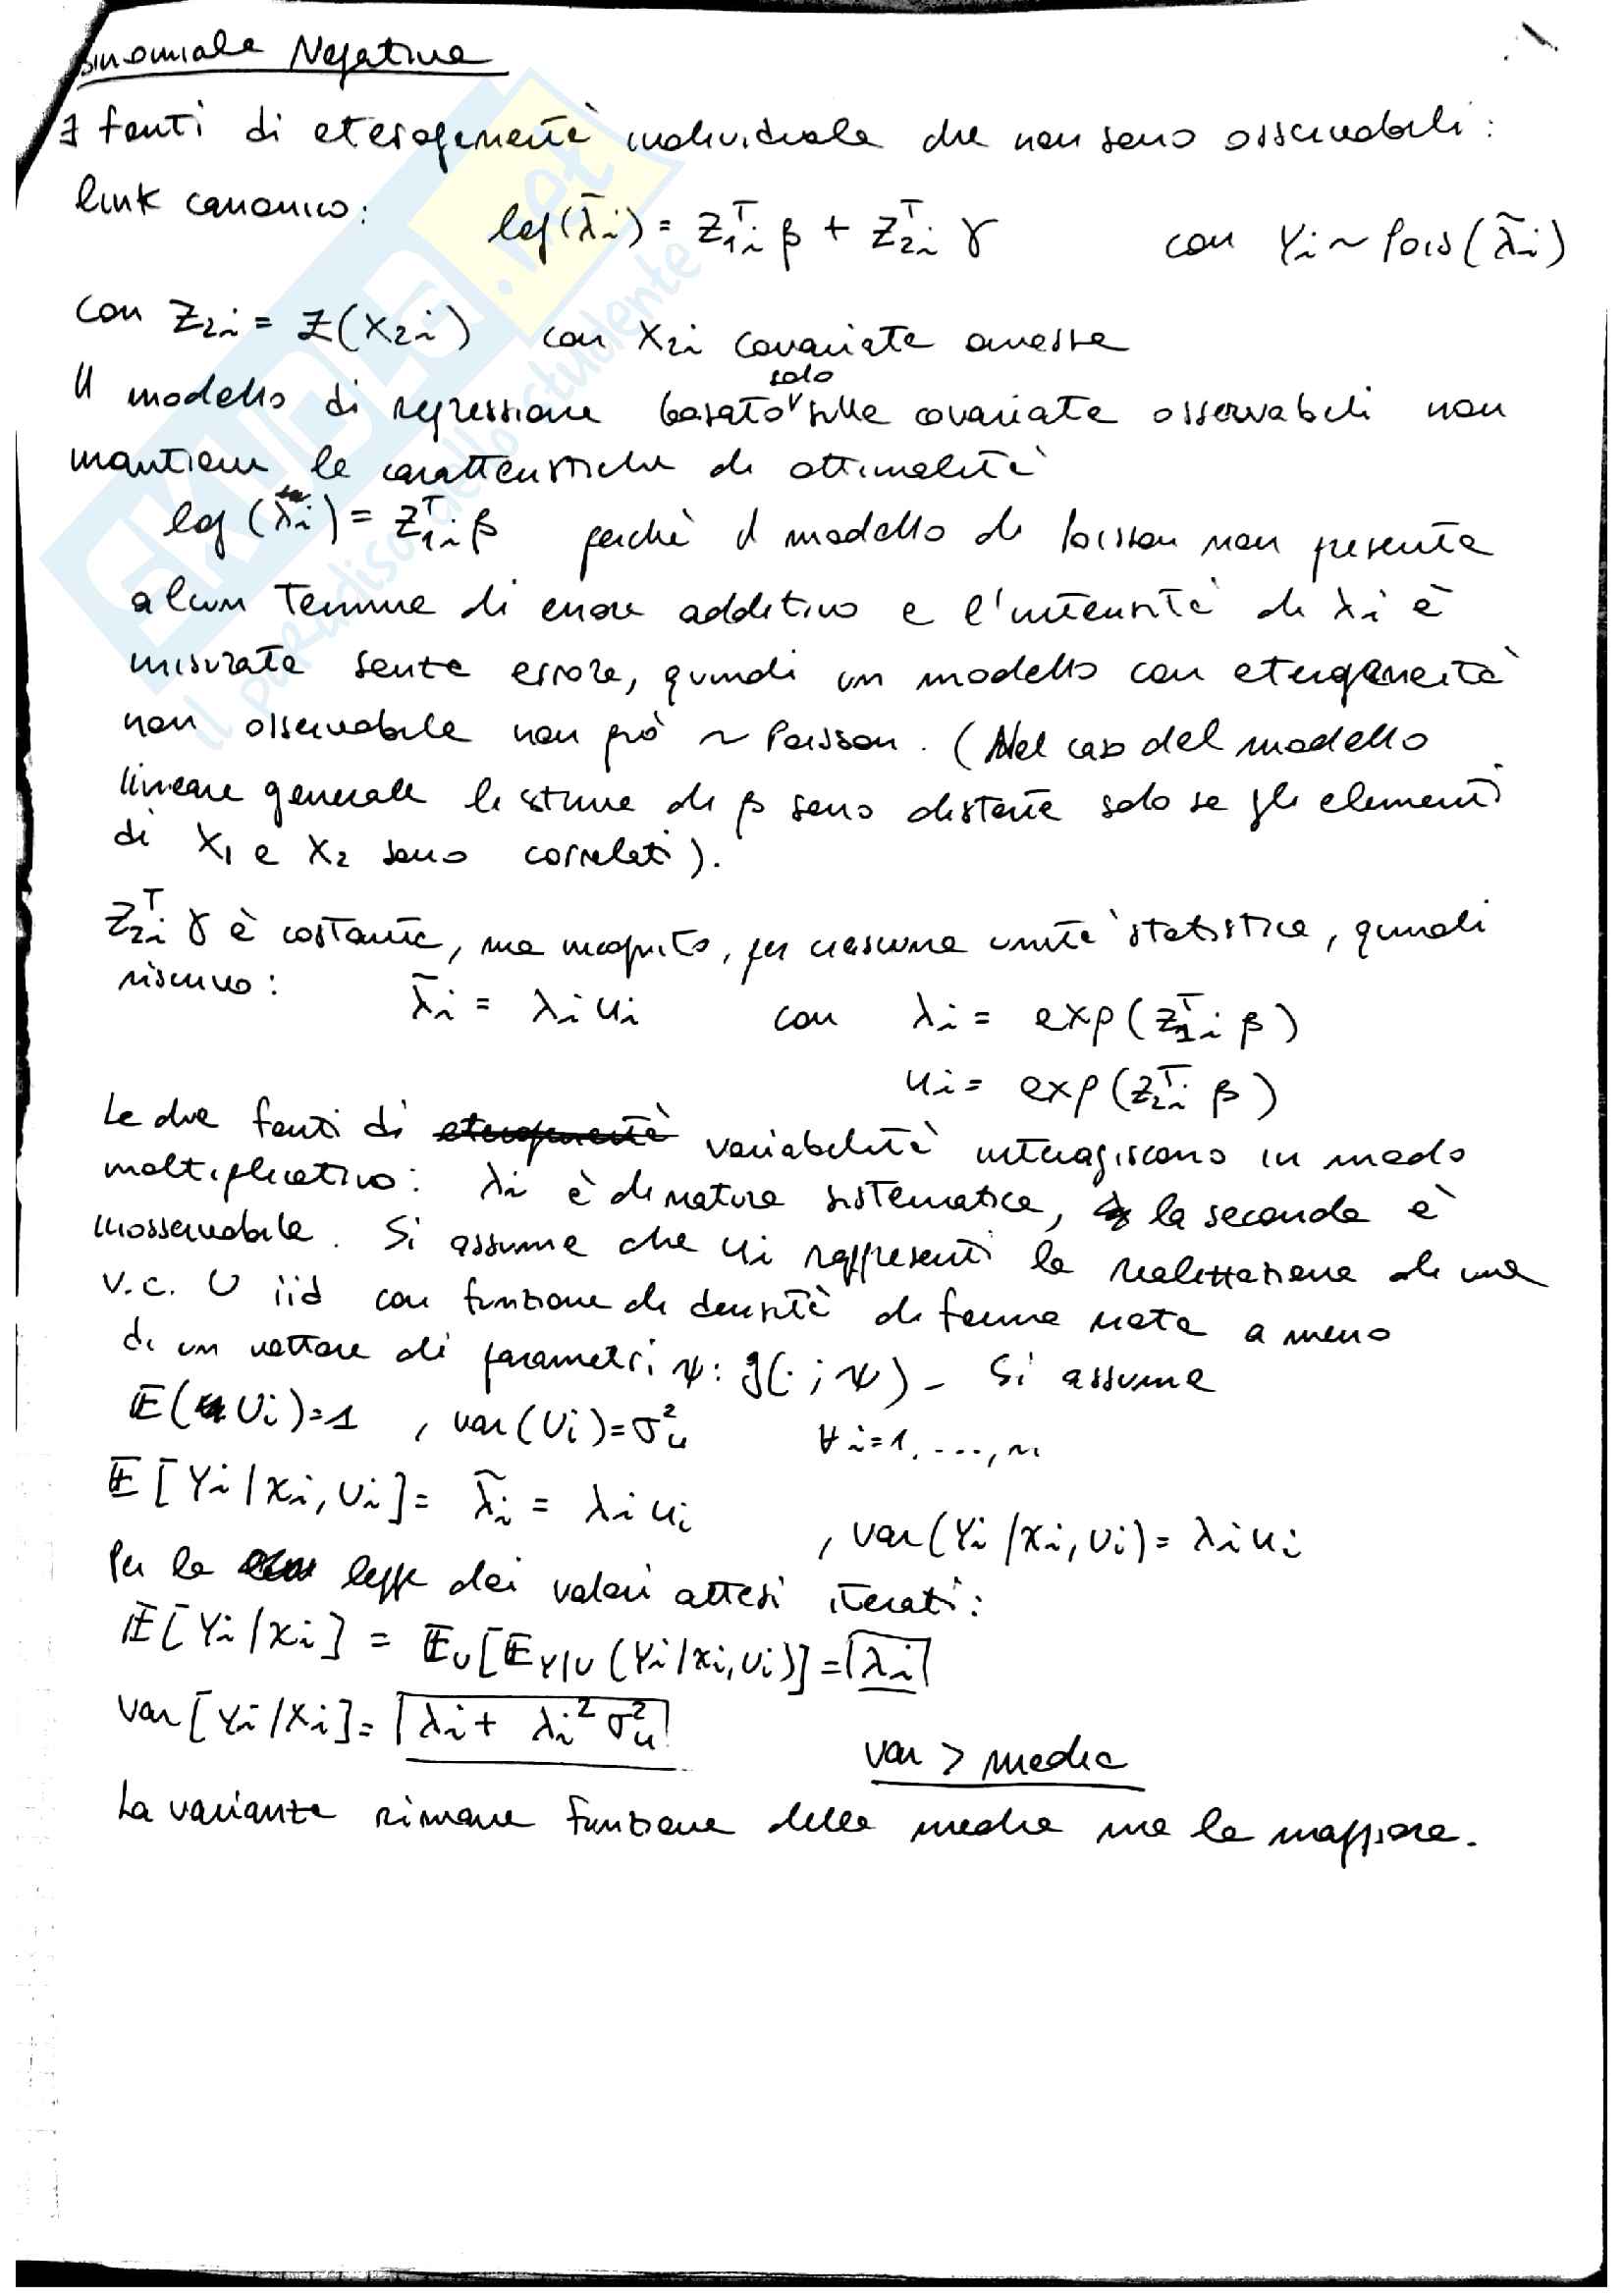 Binomiale Negativa
∃ fonti di eterogeneità individuale che non sono osservabili:
link canonico: log(λ̃i) = Z1iᵀ β + Z2iᵀ γ con Yi ~ Pois(λ̃i)
con Z2i = Z(X2i) con X2i covariate omesse
Il modello di regressione basato solo sulle covariate osservabili non
mantiene le caratteristiche di ottimalità
log(λi) = Z1iᵀ β perchè il modello di Poisson non presenta
alcun termine di errore additivo e l'intensità di λi è
misurata senza errore, quindi un modello con eterogeneità
non osservabile non può ~ Poisson. (Nel caso del modello
lineare generale le stime di β sono distorte solo se gli elementi
di X1 e X2 sono correlati).
Z2iᵀ γ è costante, ma incognito, per ciascuna unità statistica, quindi
riscrivo: λ̃i = λi ui con λi = exp(Z1iᵀ β)
ui = exp(Z2iᵀ β)
Le due fonti di eterogeneità variabilità interagiscono in modo
moltiplicativo: λi è di natura sistematica, la seconda è
inosservabile. Si assume che ui rappresenti la realizzazione di una
v.c. U iid con funzione di densità di forma nota a meno
di un vettore di parametri ψ: g(· ; ψ) - Si assume
E(Ui)=1 , var(Ui)=σ²u ∀ i=1, ..., n
E[Yi/xi, Ui] = λ̃i = λi ui , var(Yi/xi, Ui) = λi ui
Per la legge dei valori attesi iterati:
E[Yi/xi] = EU[EY/U (Yi/xi, Ui)] = λi
var[Yi/Xi] = λi + λi² σ²u
var > media
La varianza rimane funzione della media ma la maggiora.
SKUOLA.net
Il paradiso dello studente